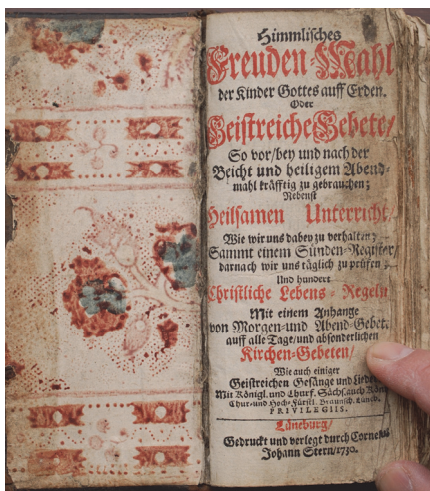 Himmlisches
Freuden-Mahl
der Kinder Gottes auff Erden.
Oder
Geistreiche Gebete/
So vor/bey und nach der
Beicht und heiligem Abend-
mahl kräfftig zu gebrauchen;
Nebenst
Heilsamen Unterricht/
Wie wir uns dabey zu verhalten;
Sammt einem Sünden-Register/
darnach wir uns täglich zu prüfen;
Und hundert
Christliche Lebens-Regeln
Mit einem Anhange
von Morgen-und Abend-Gebet,
auff alle Tage/und absonderlichen
Kirchen-Gebeten/
Wie auch einiger
Geistreichen Gesänge und
Mit Königl. und Churf. Sächs. auch
Chur-und Hoch-Fürstl. Braunsch. Lüneb.
PRIVILEGIIS.
Lüneburg/
Gedruckt und verlegt durch Cornelius
Johann Stern/1730.